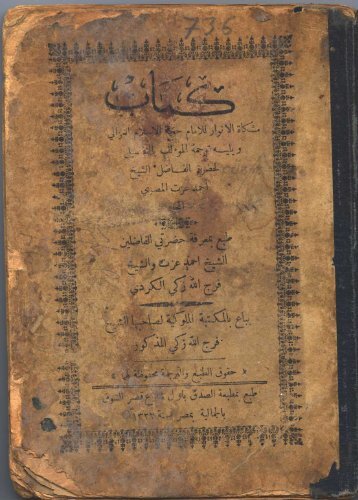 735
كتاب
مشكاة الانوار للامام حجة الاسلام الغزالي
ويليه ترجمة المؤلف
لحضرة الفاضل الشيخ
احمد عزت المصري
طبع بمعرفة حضرتي الفاضلين
الشيخ احمد عزت والشيخ
فرج الله زكي الكردي
يباع بالمكتبة الملوكية لصاحبها الشيخ
فرج الله زكي المذكور
حقوق الطبع والترجمة محفوظة
طبع بمطبعة الصدق باول شارع قصر الشوق
بالجمالية بمصر سنة ١٣٢٢